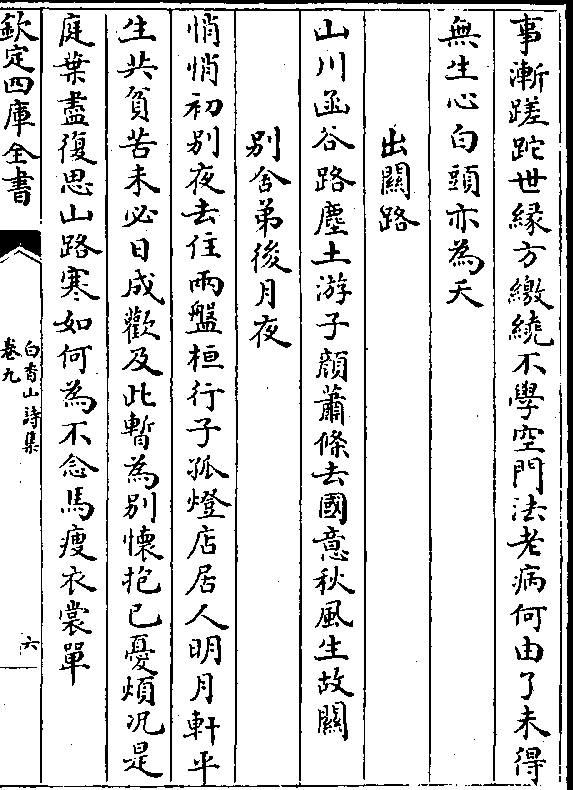 事漸蹉跎世緣方繳繞不學空門法老病何由了未得
無生心白頭亦為夭
出關路
山川函谷路塵土游子顔蕭條去國意秋風生故關
別舍弟後月夜
悄悄初別夜去住兩盤桓行子孤燈店居人明月軒平
生共貧苦未必日成歡及此暫為別懷抱已憂煩況是
庭葉盡復思山路寒如何為不念馬瘦衣裳單
欽定四庫全書
白香山詩集
卷九
六